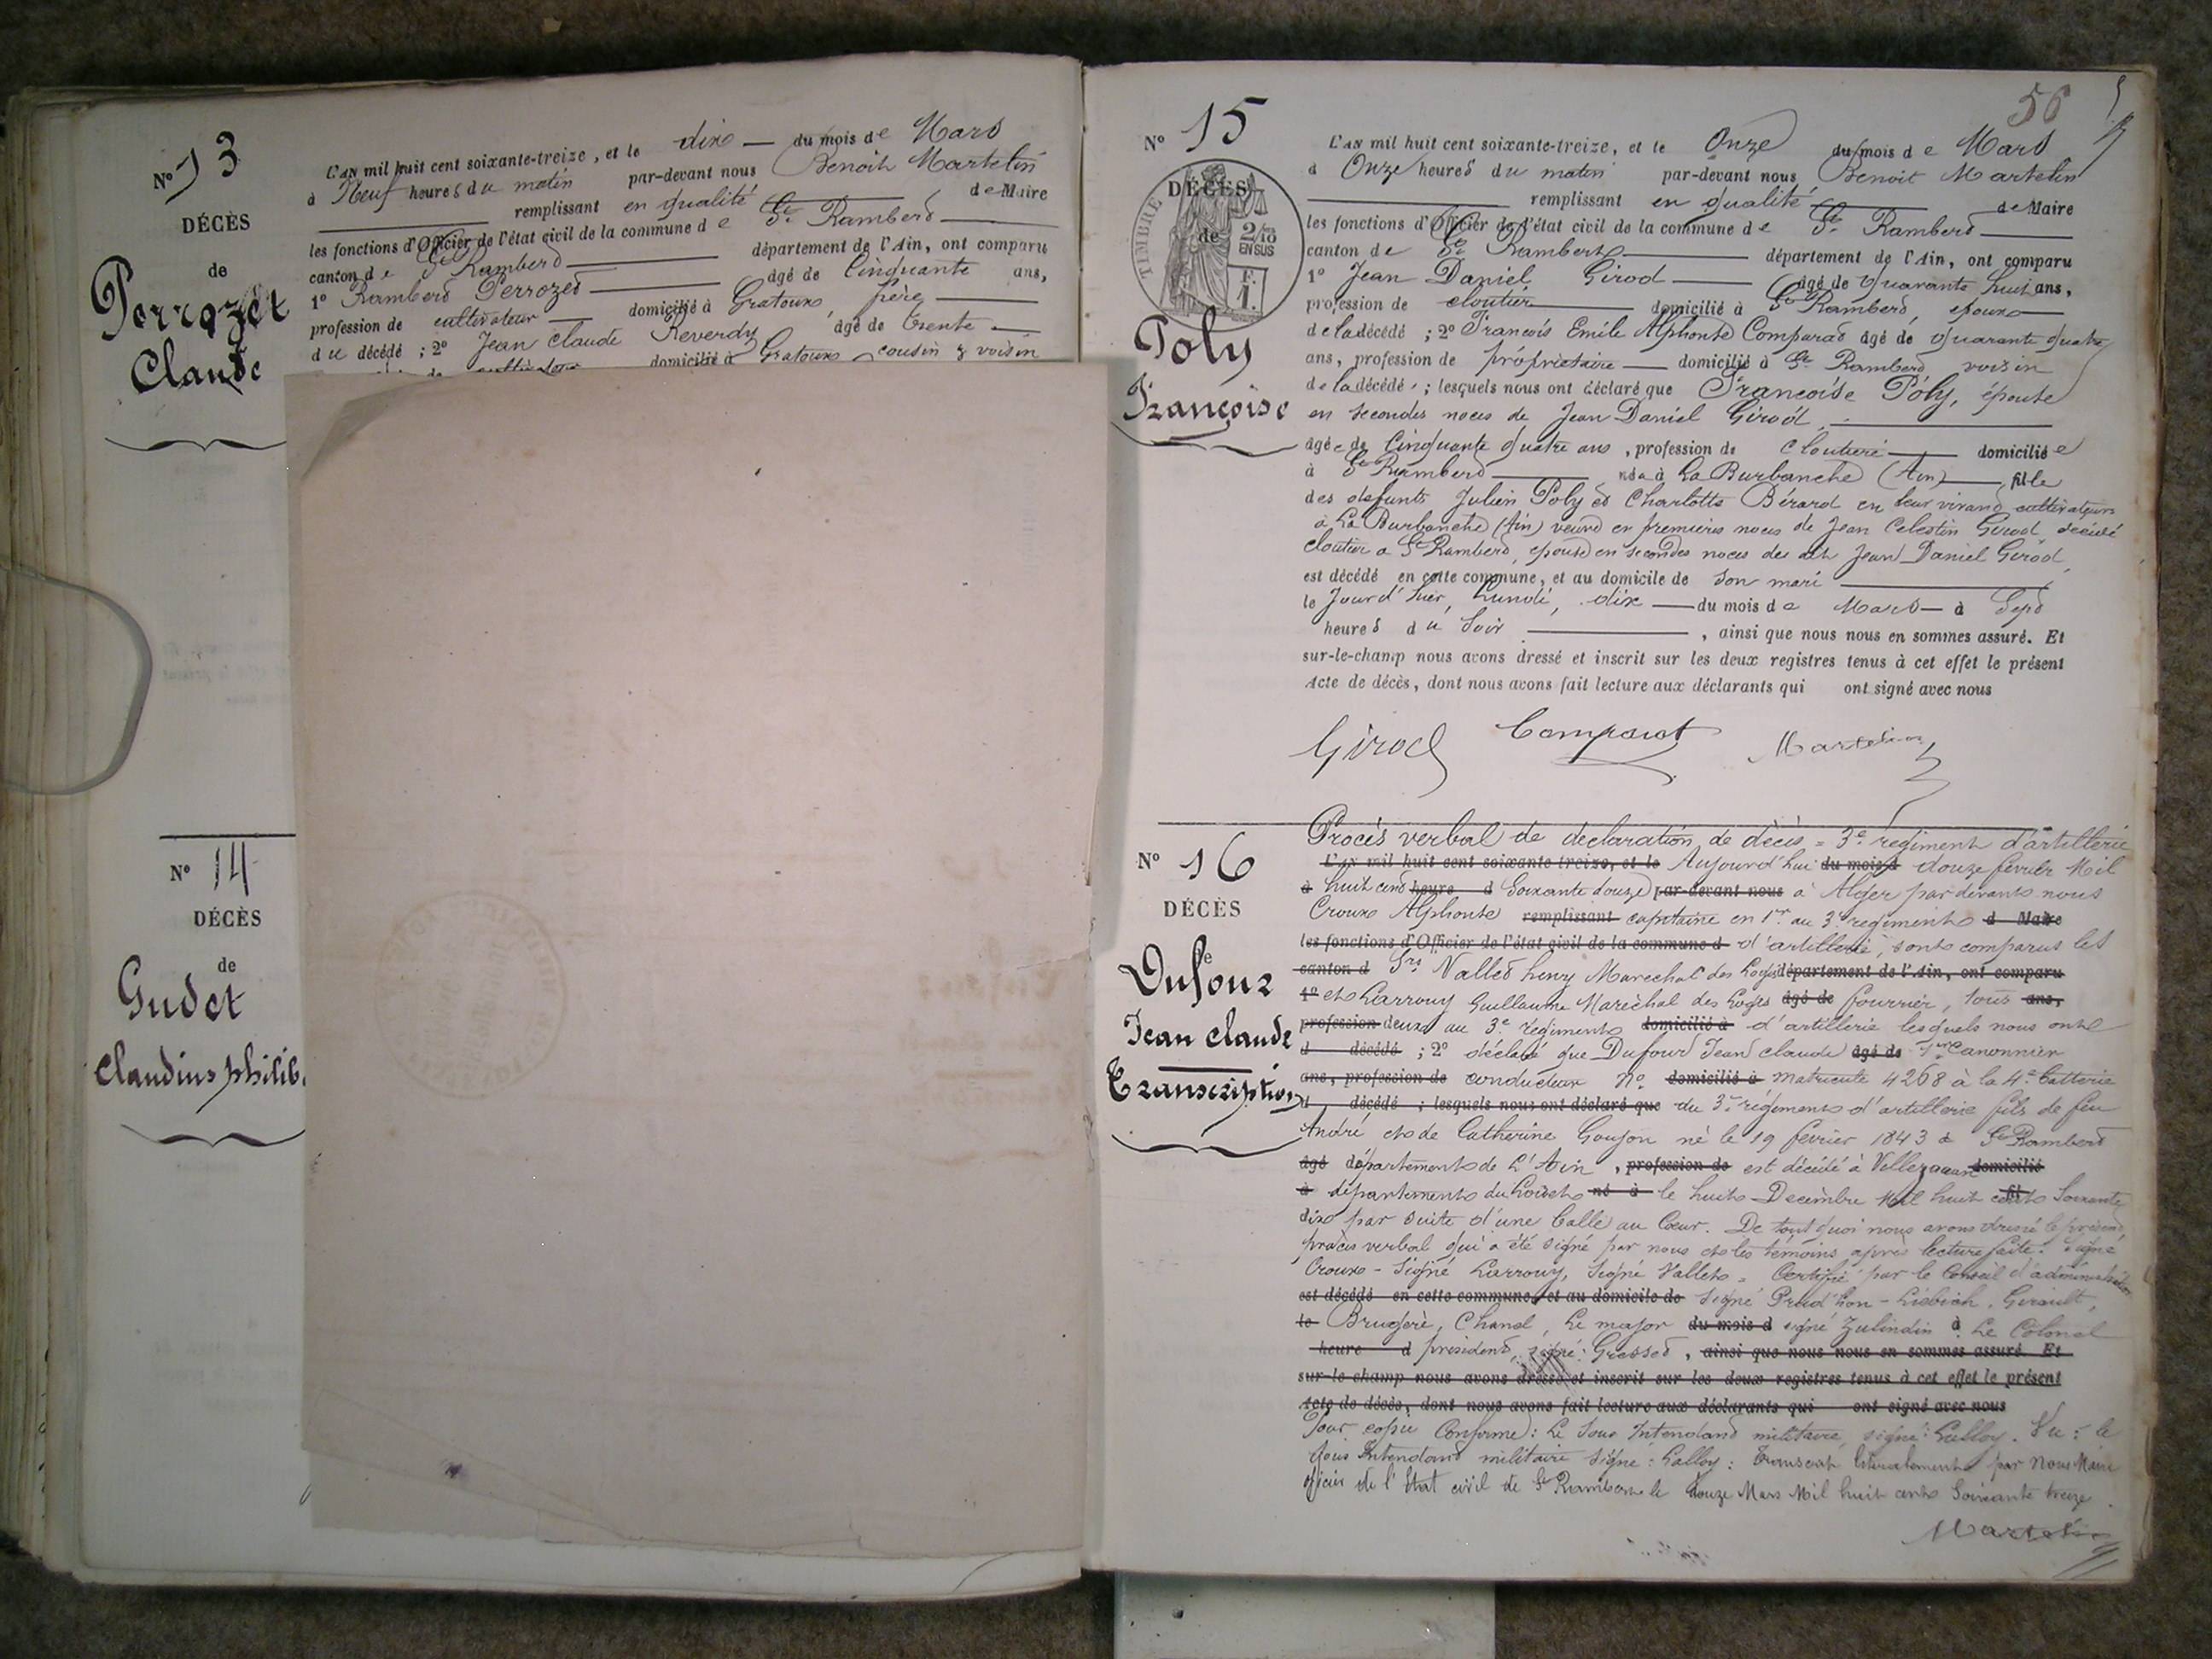 N° 13
DÉCÈS
de
Perrozet
Claude
L'AN mil huit cent soixante-treize, et le dix du mois de Mars
à Neuf heures du matin par-devant nous Benoit Martelin
remplissant en qualité de Maire
les fonctions d'Officier de l'état civil de la commune de St Rambert
canton de St Rambert département de l'Ain, ont comparu
1° Rambert Perrozet âgé de Cinquante ans,
profession de cultivateur domicilié à Gratoux, père
du décédé ; 2° Jean Claude Reverdy âgé de trente
cultivateur domicilié à Gratoux cousin & voisin
N° 14
DÉCÈS
de
Gudet
Claudius philib.
56
N° 15
TIMBRE
DÉCÈS
de
2/10
EN SUS
F.
1.
Poly
Françoise
L'AN mil huit cent soixante-treize, et le Onze du mois de Mars
à Onze heures du matin par-devant nous Benoit Martelin
remplissant en qualité de Maire
les fonctions d'Officier de l'état civil de la commune de St Rambert
canton de St Rambert département de l'Ain, ont comparu
1° Jean Daniel Girod âgé de Quarante huit ans,
profession de cloutier domicilié à St Rambert, époux
de la décédé ; 2° François Emile Alphonse Comparat âgé de quarante quatre
ans, profession de propriétaire domicilié à St Rambert voisin
de la décédé ; lesquels nous ont déclaré que Françoise Poly, épouse
en secondes noces de Jean Daniel Girod,
âgée de Cinquante quatre ans, profession de cloutière domiciliée
à St Rambert née à La Burbanche (Ain) fille
des défunts Julien Poly et Charlotte Bérard en leur vivant cultivateurs
à La Burbanche (Ain) veuve en premières noces de Jean Celestin Girod décédé
cloutier a St Rambert, épouse en secondes noces du dit Jean Daniel Girod,
est décédé en cette commune, et au domicile de son mari
le Jour d'hier, Lundi, dix du mois de Mars à Sept
heures du Soir, ainsi que nous nous en sommes assuré. Et
sur-le-champ nous avons dressé et inscrit sur les deux registres tenus à cet effet le présent
Acte de décès, dont nous avons fait lecture aux déclarants qui ont signé avec nous
Girod Comparat Martelin
N° 16
DÉCÈS
de
Dufour
Jean Claude
Transcription
Procès verbal de déclaration de décès = 3e régiment d'artillerie
L'AN mil huit cent soixante-treize, et le Aujourd'hui du mois d douze février Mil
à huit cent heure d Soixante douze par-devant nous à Alger par devant nous
Croux Alphonse remplissant capitaine en 1er au 3e régiment d Maire
les fonctions d'Officier de l'état civil de la commune d d'artillerie, sont comparus les
canton d Srs Vallet henry Marechal des Logis département de l'Ain, ont comparu
1° et Larrouy Guillaume Maréchal des Logis âgé de fourrier, tous ans,
profession deux au 3e régiment domicilié à d'artillerie lesquels nous ont
d décédé ; 2° déclaré que Dufour Jean Claude âgé de 1er Canonnier
ans, profession de conducteur N° domicilié à Matricule 4268 à la 4e batterie
d décédé ; lesquels nous ont déclaré que du 3e régiment d'artillerie fils de feu
André et de Catherine Goujon né le 19 février 1843 à St Rambert
âgé département de L'Ain, profession de est décédé à domicilié
à département du Loiret né à le huit Decembre Mil huit cent fil Soixante
dix par suite d'une balle au Cœur. De tout quoi nous avons dressé le présent
procès verbal qui a été signé par nous et les témoins après lecture faite. Signé
Croux - Signé Larrouy, Signé Vallet = Certifié par le Conseil d'administration
est décédé en cette commune, et au domicile de Signé Prud'hon - Liebich, Girault,
le Brugère, Chanel, Le major du mois d signé Zulindin à Le Colonel
heure d président, signé: Gresset, ainsi que nous nous en sommes assuré. Et
sur-le-champ nous avons dressé et inscrit sur les deux registres tenus à cet effet le présent
Acte de décès, dont nous avons fait lecture aux déclarants qui ont signé avec nous
Pour copie Conforme: Le Sous Intendant militaire, signé: Galloy. Vu: le
Sous Intendant militaire Signé: Galloy: Transcrit littéralement par Nous Maire
officier de l'Etat civil de St Rambert le douze Mars Mil huit cent Soixante treize.
Martelin